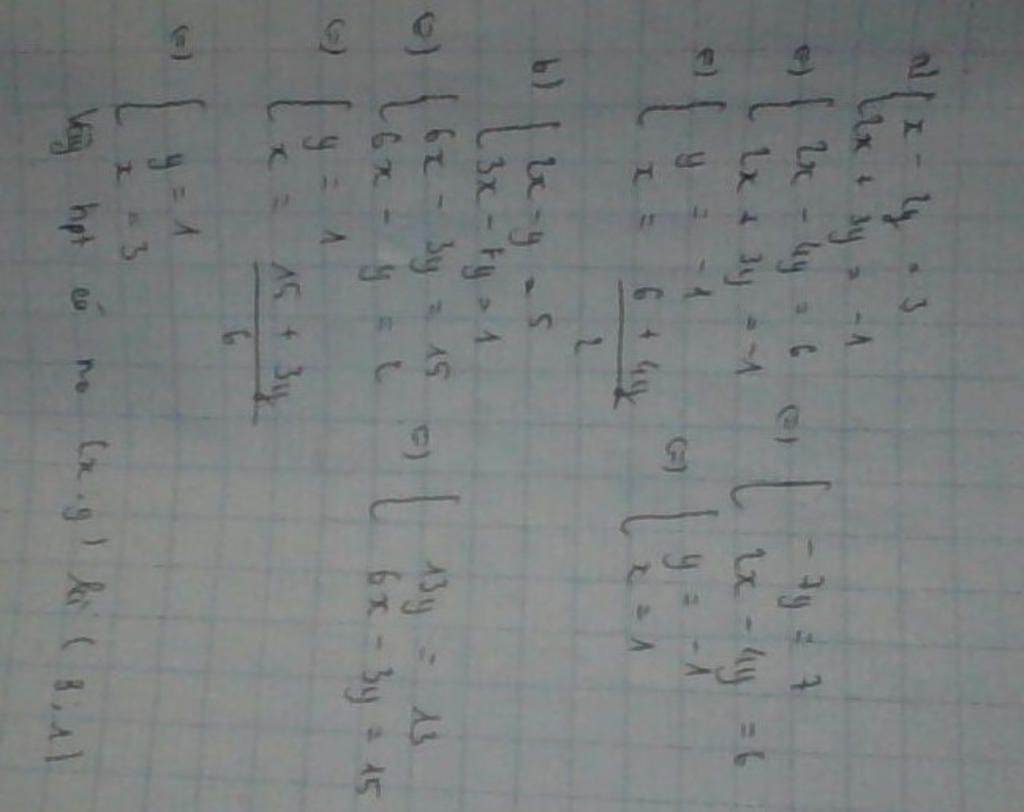 a) { x - 2y = 3
2x + 3y = -1
⇔ { 2x - 4y = 6
2x + 3y = -1
⇔ { -7y = 7
2x - 4y = 6
⇔ { y = -1
x = (6 + 4y)/2
⇔ { y = -1
x = 1
b) { 2x - y = 5
3x - 7y = 1
⇔ { 6x - 3y = 15
6x - y = 2
⇔ { 13y = 13
6x - 3y = 15
⇔ { y = 1
x = (15 + 3y)/6
⇔ { y = 1
x = 3
Vậy hpt có no (x, y) là (3, 1)